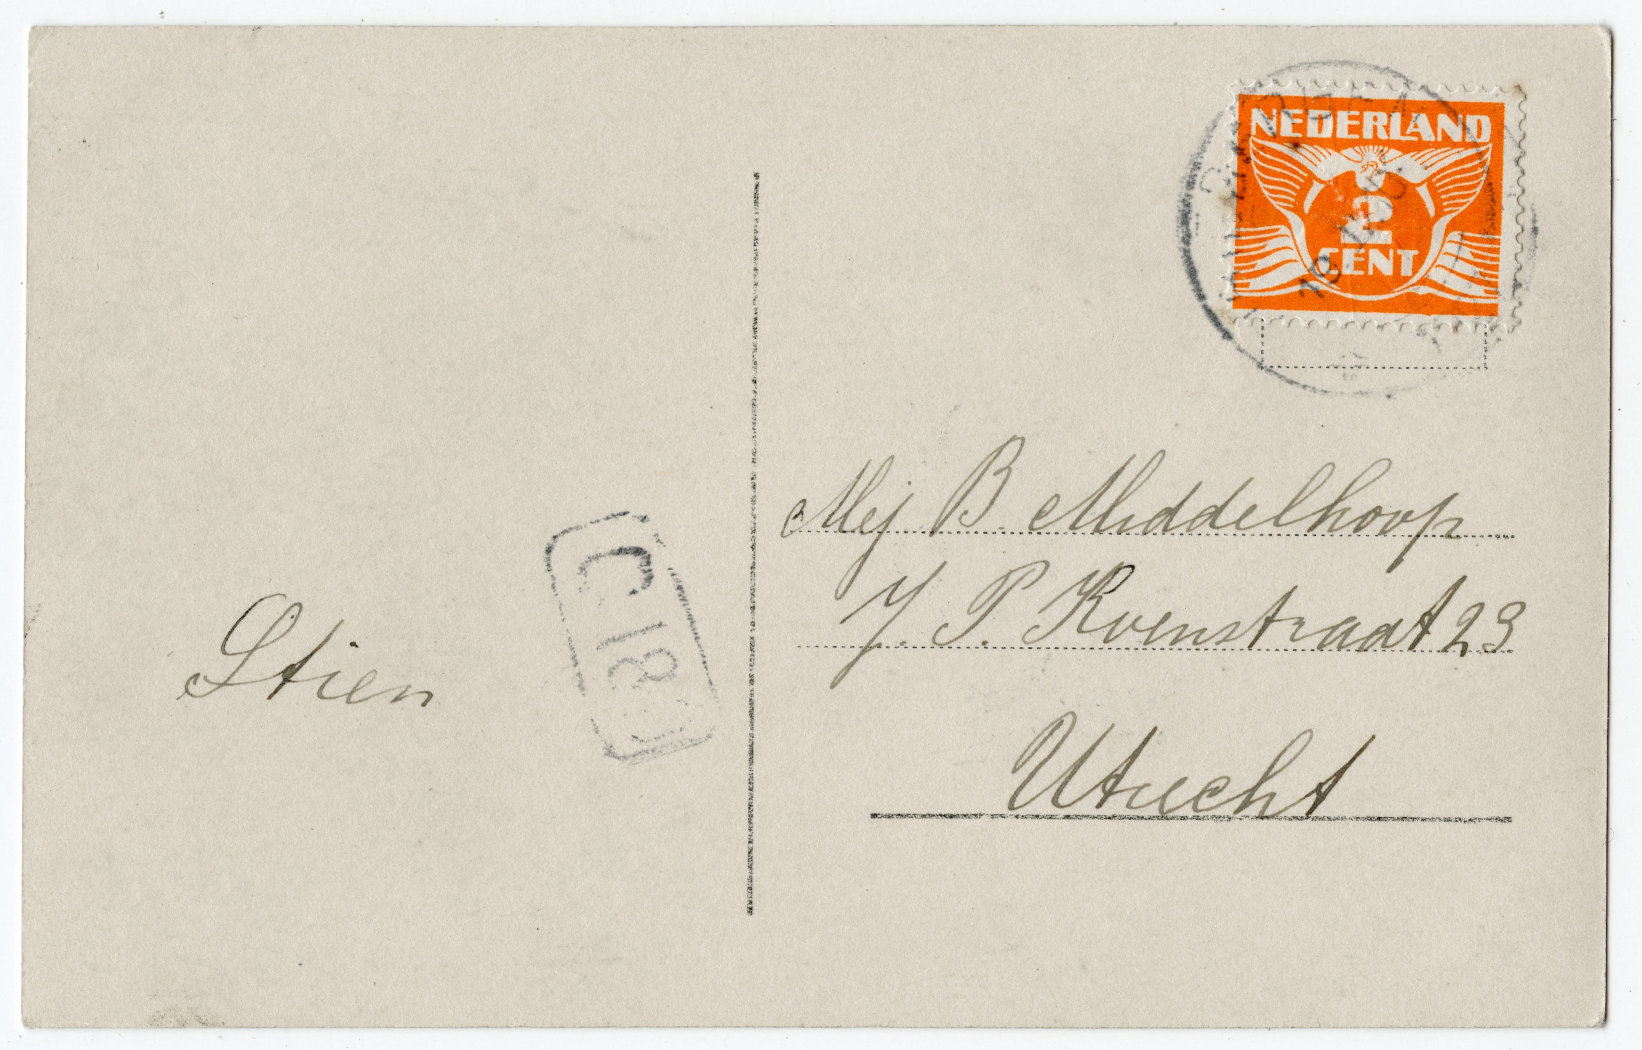 NEDERLAND
2
CENT
Mej B. Middelhoop
J. P. Koenstraat 23
Utrecht
Stien